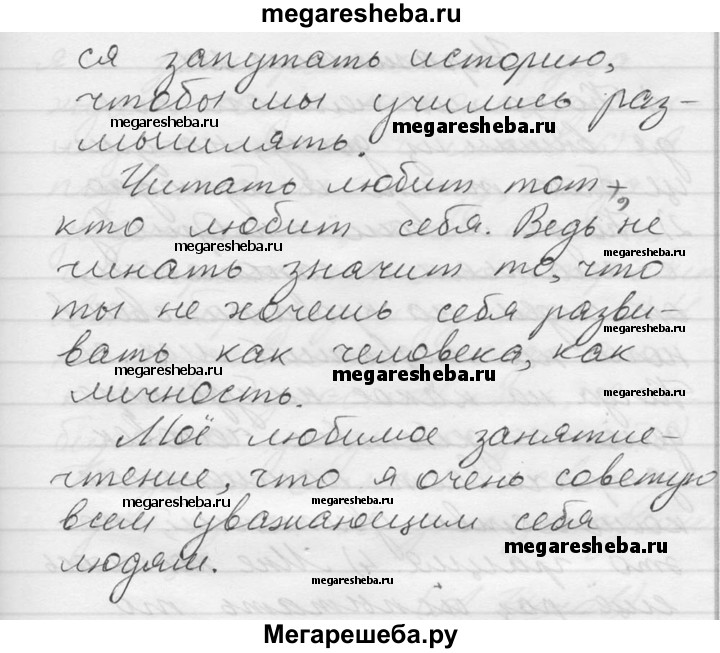 megaresheba.ru
ся запутать историю,
чтобы мы учились раз-
megaresheba.ru
megaresheba.ru
мышлять.
Читать любит тот,
кто любит себя. Ведь не
megaresheba.ru
megaresheba.ru
читать значит то, что
ты не хочешь себя разви-
megaresheba.ru
вать как человека, как
megaresheba.ru
megaresheba.ru
megaresheba.ru
личность.
Моё любимое занятие-
чтение, что я очень советую
megaresheba.ru
megaresheba.ru
всем уважающим себя
megaresheba.ru
людям.
megaresheba.ru
Мегарешеба.ру